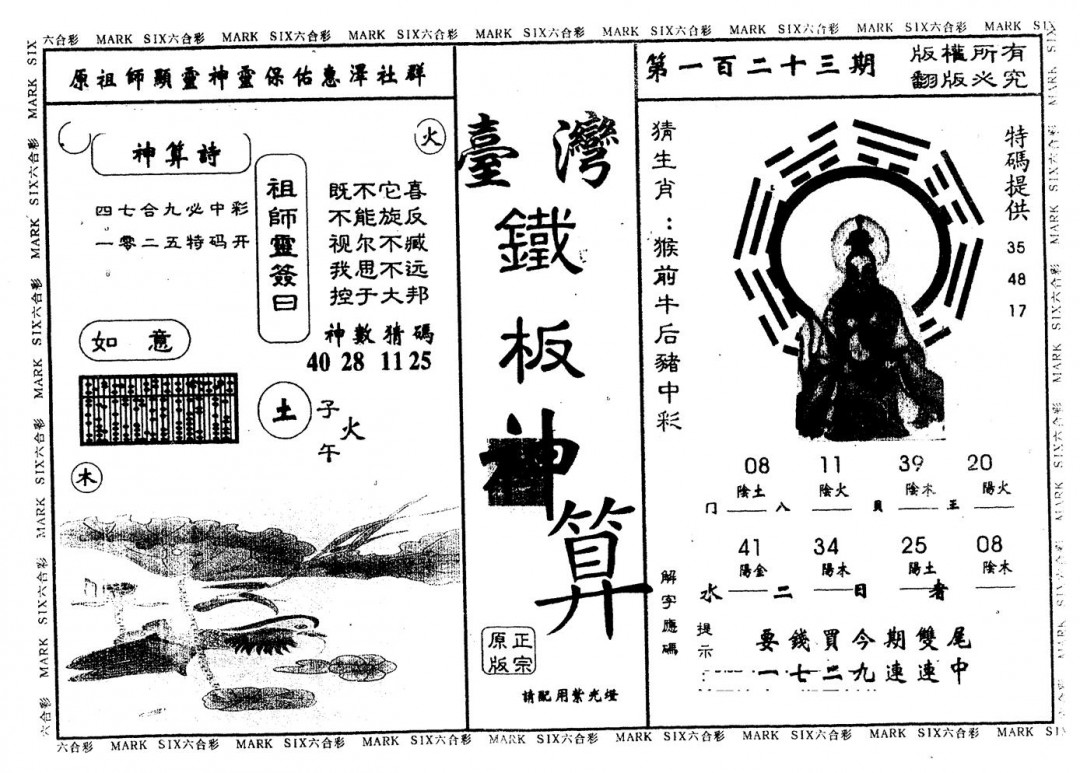 六合彩 MARK SIX六合彩 MARK SIX六合彩 MARK SIX六合彩 MARK SIX六合彩 MARK SIX六合彩 MARK SIX六合彩 MARK SIX六合彩 MARK SIX
原祖師顯靈神靈保佑惠澤社群
火
神算詩
四七合九必中彩
一零二五特码开
祖師靈簽曰
既不它喜
不能旋反
视尔不臧
我思不远
控于大邦
神數猜碼
40 28 11 25
如意
土
子
火
午
木
臺灣
鐵
板
神
算
正宗
原版
請配用紫光燈
第一百二十三期
版權所有
翻版必究
猜生肖：猴前牛后豬中彩
特碼提供
35
48
17
08 11 39 20
陰土 陰火 陰木 陽火
门 八 貝 王
41 34 25 08
陽金 陽木 陽土 陰木
水 二 日 者
解字應碼
提示
要錢買今期雙尾
一七二九連連中
六合彩 MARK SIX六合彩 MARK SIX六合彩 MARK SIX六合彩 MARK SIX六合彩 MARK SIX六合彩 MARK SIX六合彩 MARK SIX六合彩 MARK SIX